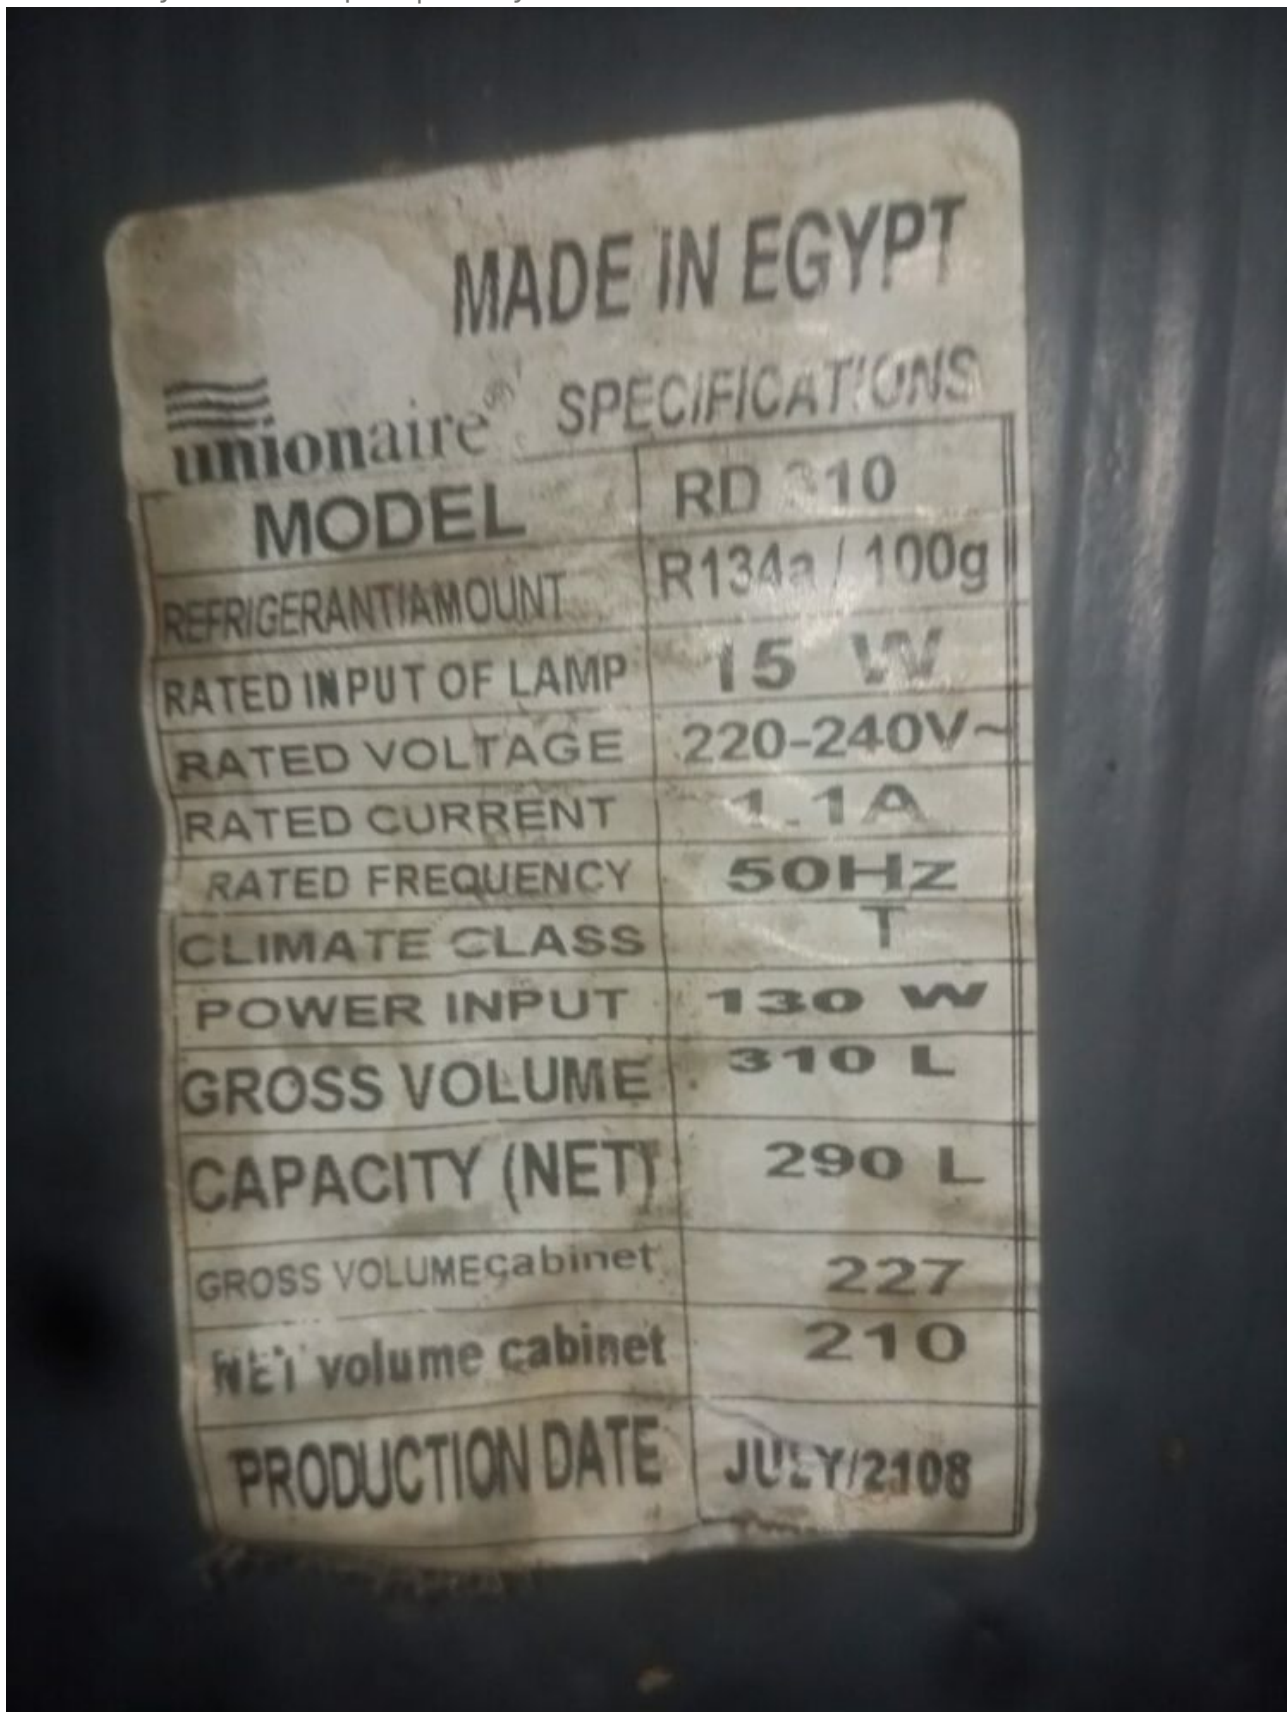 MADE IN EGYPT
unionaire® SPECIFICATIONS
MODEL RD 310
REFRIGERANT/AMOUNT R134a / 100g
RATED INPUT OF LAMP 15 W
RATED VOLTAGE 220-240V~
RATED CURRENT 1.1A
RATED FREQUENCY 50Hz
CLIMATE CLASS T
POWER INPUT 130 W
GROSS VOLUME 310 L
CAPACITY (NET) 290 L
GROSS VOLUMEcabinet 227
NET volume cabinet 210
PRODUCTION DATE JULY/2108